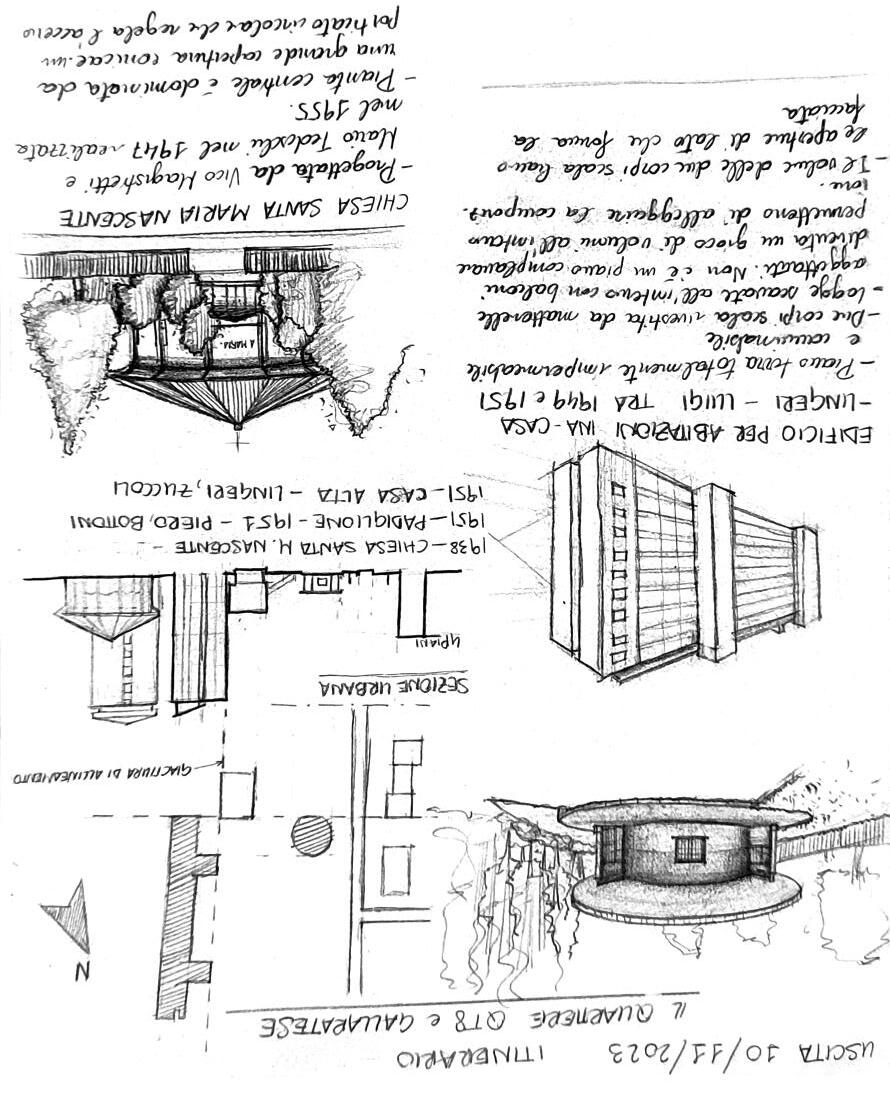 USCITA 10/11/2023 ITINERARIO
IL QUARTIERE QT8 e GALLARATESE
N
GIACITURA DI ALLINEAMENTO
SEZIONE URBANA
4 PIANI
1938 - CHIESA SANTA M. NASCENTE -
1951 - PADIGLIONE - 1951 - PIERO, BOTTONI
1951 - CASA ALTA - LINGERI, ZUCCOLI
EDIFICIO PER ABITAZIONI INA-CASA
- LINGERI - LUIGI TRA 1949 e 1951
- Piano terra totalmente impermeabile
e camminabile
- Due corpi scala rivestita da mattonelle
- Logge scavate all'interno con balconi
aggettanti. Non c'è un piano complanare
diventa un gioco di volumi all'interno
permettono di alleggerire la compos.
ione.
- Il volume delle due corpi scala hanno
le aperture di lato che forma la
facciata
A MARIA.
CHIESA SANTA MARIA NASCENTE
- Progettata da Vico Magistretti e
Mario Tedeschi nel 1947 realizzata
nel 1955.
- Pianta centrale è dominata da
una grande copertura conica e un
porticato circolare che regola l'accesso